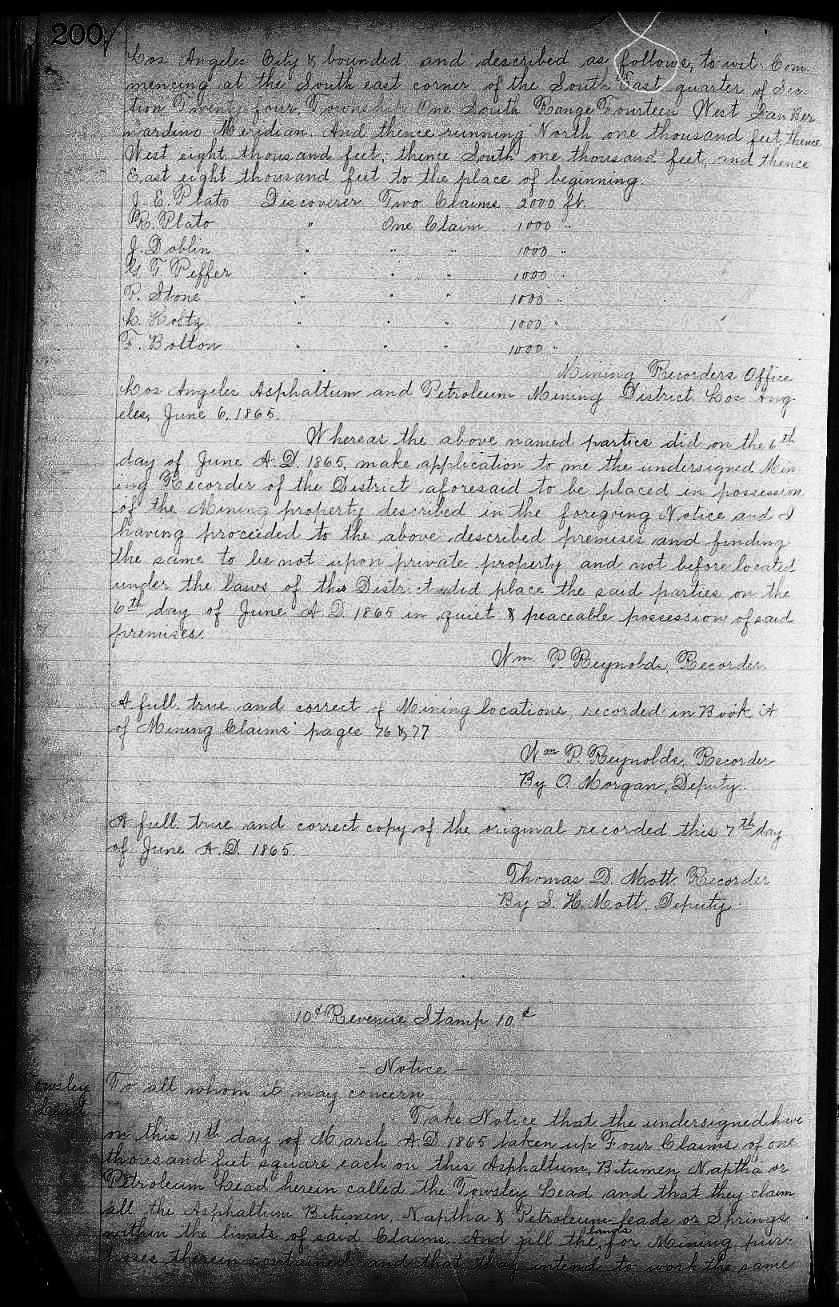 200
Los Angeles City & bounded and described as follows, to wit. Com-
mencing at the South east corner of the South East quarter of Sec-
tion Twenty four, Township One South Range Fourteen West San Ber
nardino Meridian. And thence running North one thousand feet, thence
West eight thousand feet, thence South one thousand feet, and thence
East eight thousand feet to the place of beginning.
J. E. Plato Discoverer Two Claims 2000 ft.
R. Plato " One Claim 1000 "
J. Doblin " " " 1000 "
G. T. Peffer " " " 1000 "
P. Stone " " " 1000 "
L. " " " 1000 "
F. Bolton " " " 1000 "
Mining Recorders Office
Los Angeles Asphaltum and Petroleum Mining District Los Ang-
eles, June 6, 1865.
Whereas the above named parties did on the 6th
day of June A.D. 1865, make application to me the undersigned Min
ing Recorder of the District aforesaid to be placed in possession
of the Mining property described in the foregoing Notice and I
having proceeded to the above described premises and finding
the same to be not upon private property and not before located
under the Laws of this District did place the said parties on the
6th day of June A.D. 1865 in quiet & peaceable possession of said
premises.
Wm. P. Reynolds, Recorder
A full true and correct of Mining locations recorded in Book A
of Mining Claims pages 76 & 77
Wm P. Reynolds, Recorder
By O. Morgan, Deputy.
A full true and correct copy of the original recorded this 7th day
of June A.D. 1865
Thomas D. Mott Recorder
By S. H. Mott, Deputy.
10¢ Revenue Stamp 10¢
- Notice -
Towsley
Lead
To all whom it may concern
Take Notice that the undersigned have
on this 11th day of March A.D. 1865 taken up Four Claims of one
thousand feet square each on this Asphaltum, Bitumen, Naptha or
Petroleum Lead herein called the Towsley Lead and that they claim
all the Asphaltum Bitumen, Naptha & Petroleum leads or Springs
within the limits of said Claims. And all the lands for Mining pur-
poses therein contained and that they intend to work the same